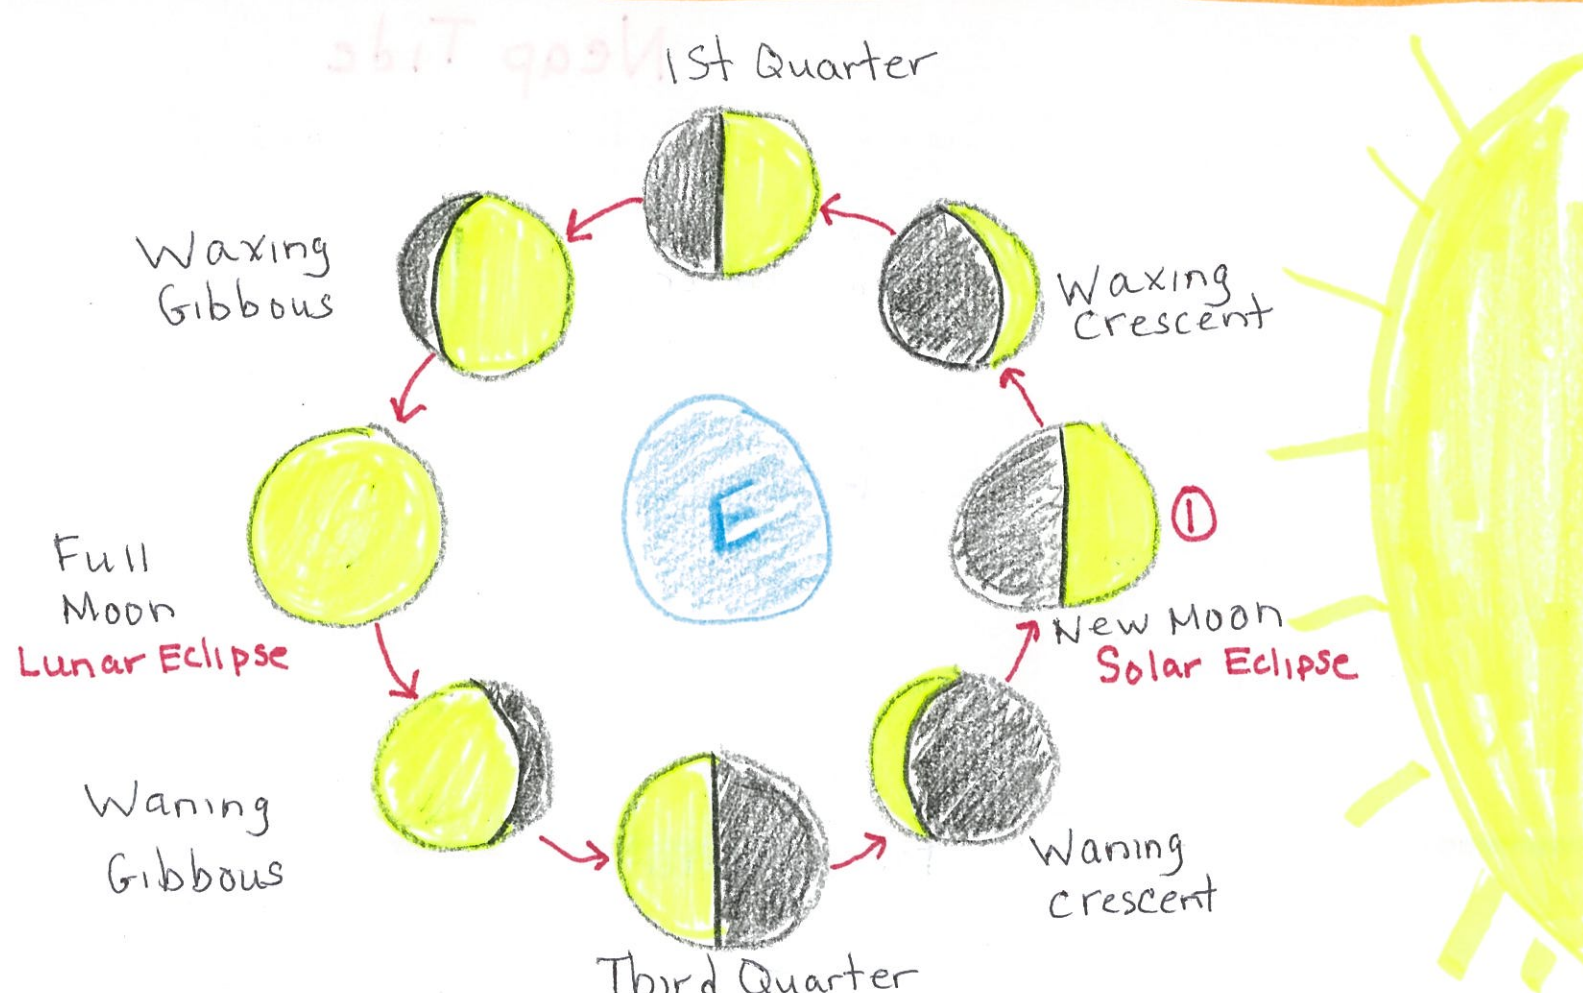 Neap Tide
1St Quarter
Waxing
Gibbous
Waxing
Crescent
E
1
Full
Moon
Lunar Eclipse
New Moon
Solar Eclipse
Waning
Gibbous
Waning
Crescent
Third Quarter